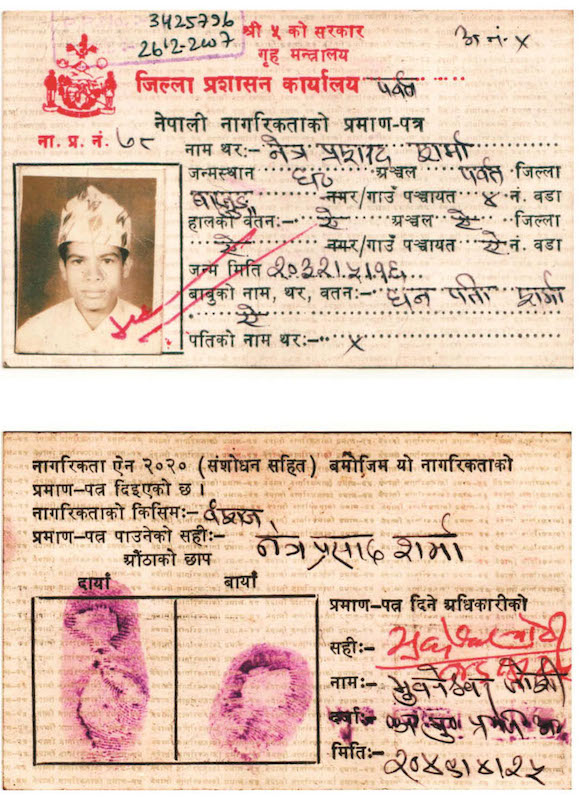 3425796
2612-2007
श्री ५ को सरकार
गृह मन्त्रालय
जिल्ला प्रशासन कार्यालय पर्वत
नेपाली नागरिकताको प्रमाण-पत्र
ना. प्र. नं. ७८
नाम थर:- नेत्र प्रशाद शर्मा
जन्मस्थान अञ्चल पर्वत जिल्ला
नगर/गाउँ पञ्चायत ४ नं. वडा
हालको वतन:- ऐ अञ्चल ऐ जिल्ला
ऐ नगर/गाउँ पञ्चायत ऐ नं. वडा
जन्म मिति २०३२।५।१६
बाबुको नाम, थर, वतन:- धन पती शर्मा
ऐ
पतिको नाम थर:- ×
नागरिकता ऐन २०२० (संशोधन सहित) बमोजिम यो नागरिकताको
प्रमाण-पत्र दिइएको छ ।
नागरिकताको किसिम:- वंशज
प्रमाण-पत्र पाउनेको सही:- नेत्र प्रसाद शर्मा
औंठाको छाप
दायाँ बायाँ
प्रमाण-पत्र दिने अधिकारीको
सही:-
नाम:-
दर्जा:-
मिति:- २०४९।४।२५